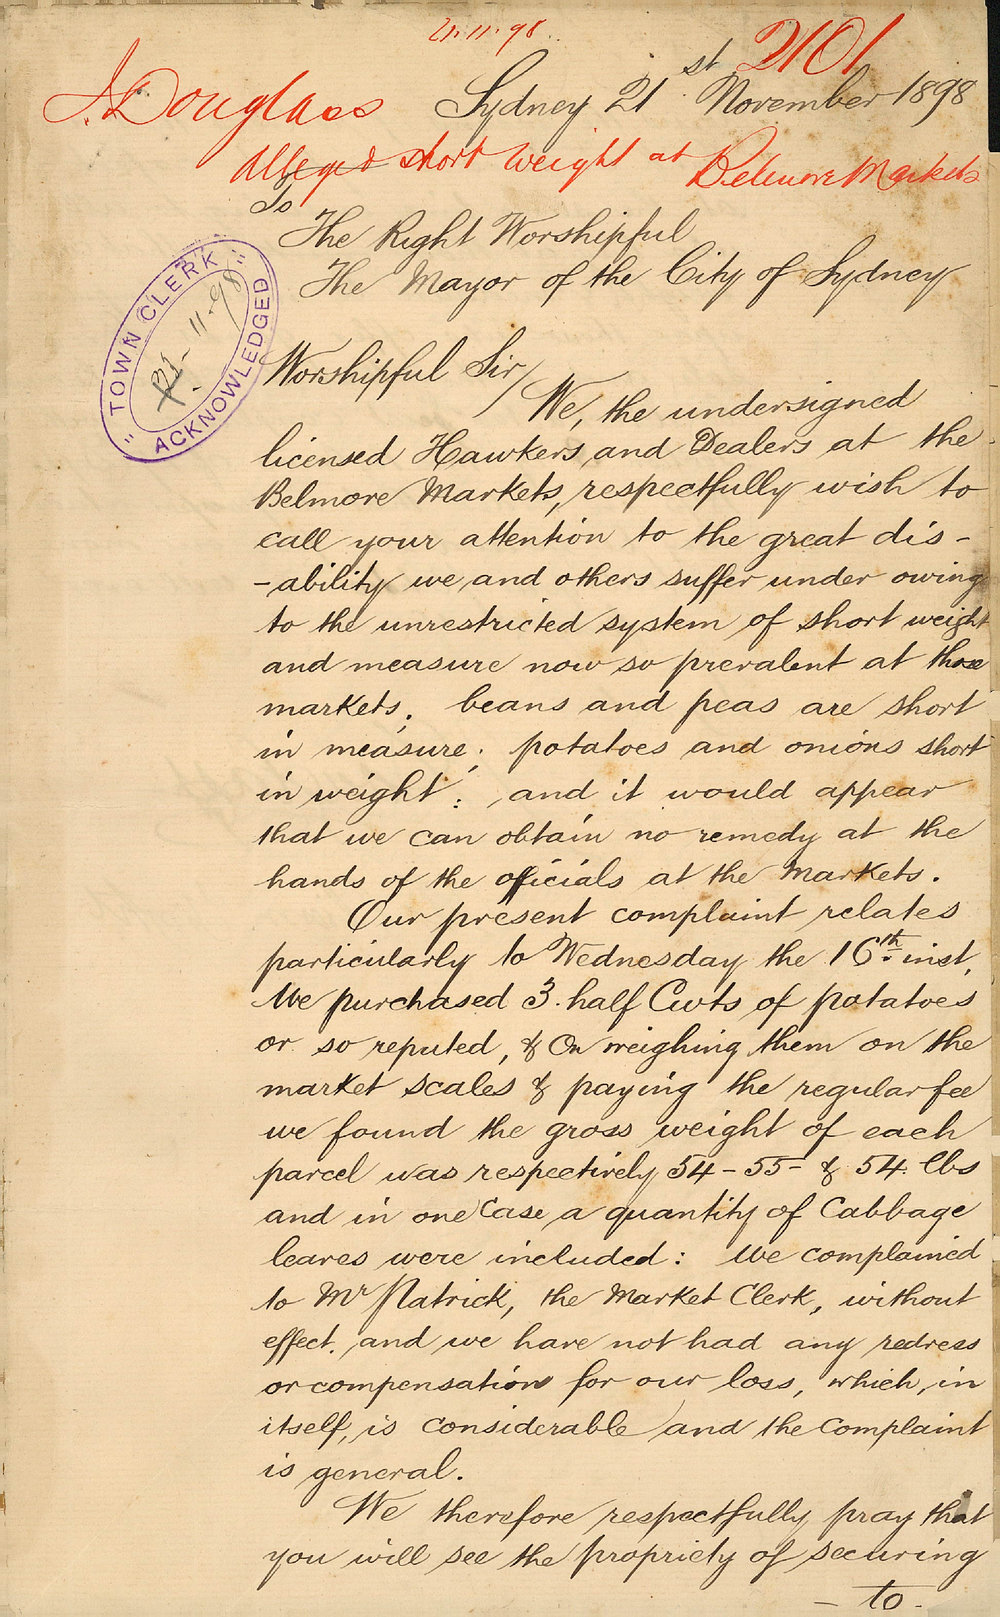 21.11.98.
2101
J. Douglass
Sydney 21st November 1898
Alleged short weight at Belmore Markets
To
The Right Worshipful
The Mayor of the City of Sydney
"TOWN CLERK"
21-11-98
ACKNOWLEDGED
Worshipful Sir/
We, the undersigned
licensed Hawkers and Dealers at the
Belmore Markets, respectfully wish to
call your attention to the great dis-
-ability we and others suffer under owing
to the unrestricted system of short weight
and measure now so prevalent at those
markets; beans and peas are short
in measure; potatoes and onions short
in weight; and it would appear
that we can obtain no remedy at the
hands of the officials at the Markets.
Our present complaint relates
particularly to Wednesday the 16th. inst.
We purchased 3 half Cwts of potatoes
or so reputed, & On weighing them on the
market scales & paying the regular fee
we found the gross weight of each
parcel was respectively 54-55- & 54 lbs
and in one case a quantity of Cabbage
leaves were included: We complained
to Mr Patrick, the Market Clerk, without
effect, and we have not had any redress
or compensation for our loss, which, in
itself, is considerable and the Complaint
is general.
We therefore respectfully pray that
you will see the propriety of securing
- to -